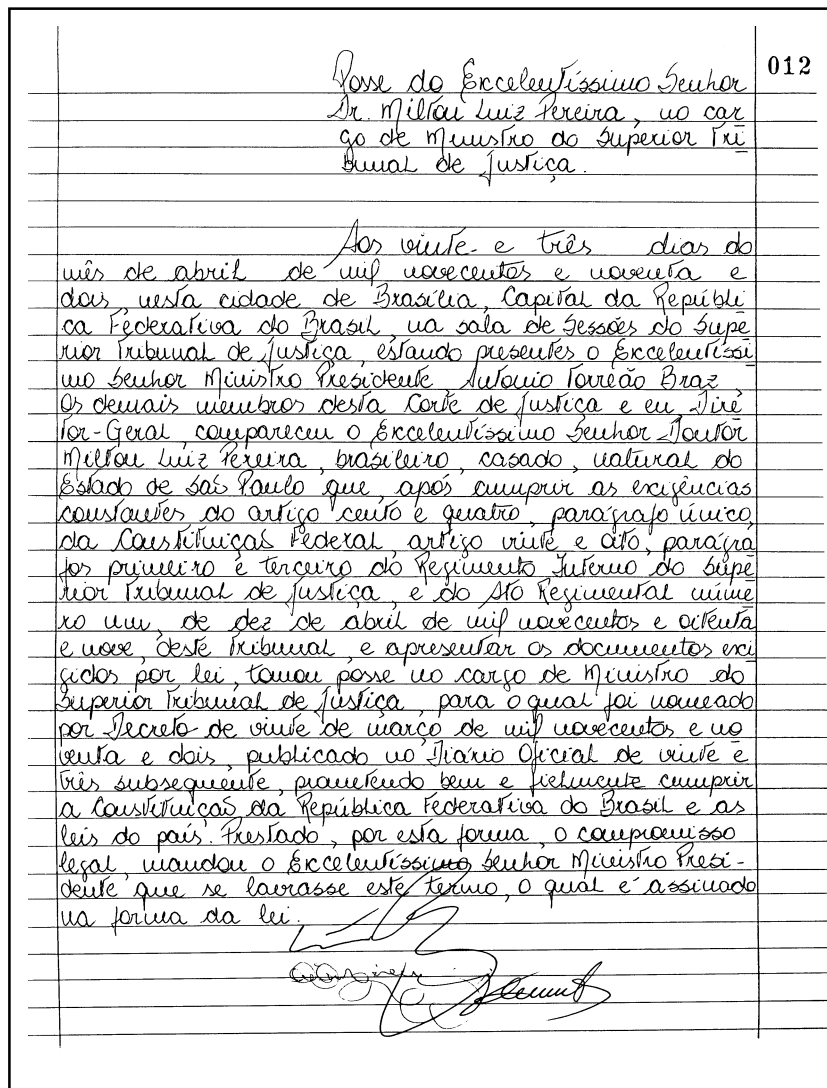 012
Posse do Excelentíssimo Senhor
Dr. Milton Luiz Pereira, no car
go de Ministro do Superior Tri
bunal de Justiça.
Aos vinte e três dias do
mês de abril de mil novecentos e noventa e
dois, nesta cidade de Brasília, Capital da Repúbli
ca Federativa do Brasil, na sala de Sessões do Supe
rior Tribunal de Justiça, estando presentes o Excelentíssi
mo Senhor Ministro Presidente, Antonio Torreão Braz,
os demais membros desta Corte de Justiça e eu, Dire
tor-Geral, compareceu o Excelentíssimo Senhor Doutor
Milton Luiz Pereira, brasileiro, casado, natural do
Estado de São Paulo que, após cumprir as exigências
constantes do artigo cento e quatro, parágrafo único,
da Constituição Federal, artigo vinte e oito, parágra
fos primeiro e terceiro do Regimento Interno do Supe
rior Tribunal de Justiça, e do Ato Regimental núme
ro um, de dez de abril de mil novecentos e oitenta
e nove, deste Tribunal, e apresentar os documentos exi
gidos por lei, tomou posse no cargo de Ministro do
Superior Tribunal de Justiça, para o qual foi nomeado
por Decreto de vinte de março de mil novecentos e no
venta e dois, publicado no Diário Oficial de vinte e
três subsequente, prometendo bem e fielmente cumprir
a Constituição da República Federativa do Brasil e as
leis do país. Prestado, por esta forma, o compromisso
legal, mandou o Excelentíssimo Senhor Ministro Presi-
dente que se lavrasse este termo, o qual é assinado
na forma da lei.